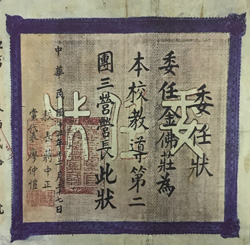 委任狀
委任金佛莊為
本校教導第二
團三營營長此狀
校長蔣中正
黨代表廖仲愷
中華民國